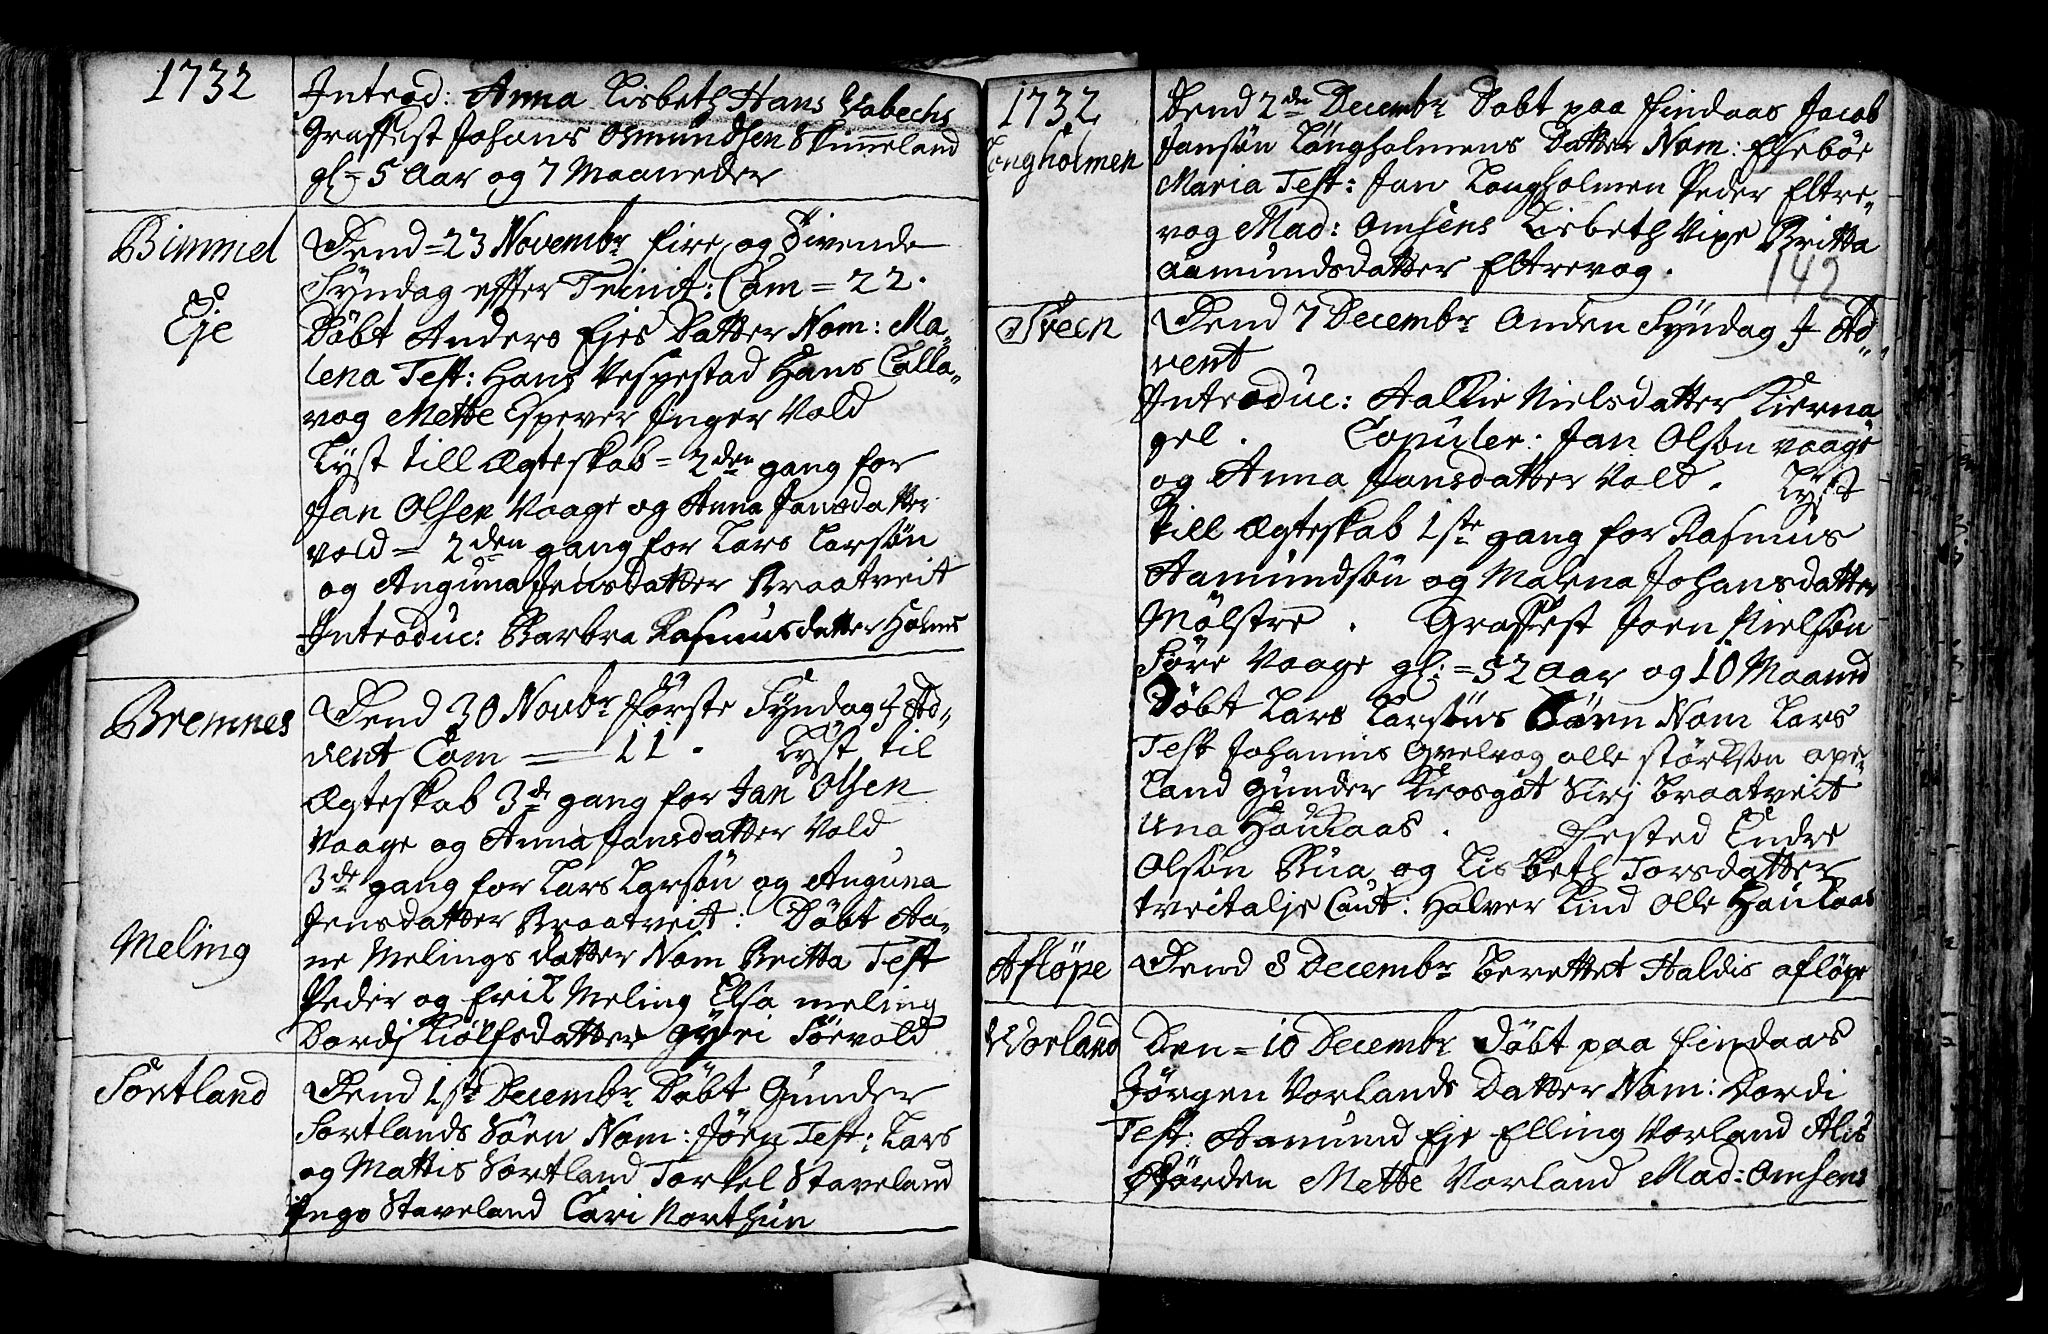 1732
Introd: Anna Lisbeth Hans Vabechs
Graffest Johans Osmundsen Skimeland
gl= 5 Aar og 7 Maaneder
Bimmel
Eje
Dend = 23 Novembr fire og Tivende
Syndag effter Trinit: Com = 22.
Döbt Anders Ejes Datter Nom: Ma„
lena Test: Hans Vespestad Hans Calla„
vog Mette Espever Inger Vold
Lyst till Ægteskab = 2den gang for
Jan Olsen Vaage og Anna Jansdatter
vold = 2den gang for Lars Larsön
og Anguna Jensdatter Braatveit
Introduc: Barbra Rasmusdatter Holms
Bremnes
Dend 30 Novbr förste Syndag J Ad„
vent Com = 11. Lyst til
Ægteskab 3de gang for Jan Olsen
Vaage og Anna Jansdatter Vold
3de gang for Lars Larsön og Anguna
Jensdatter Braatveit: Döbt Aa„
Meling
ne Melings datter Nom Britta Test
Peder og Erik Meling Elsa meling
Dordj Kiölfsdatter Gyri Sörvold
Sortland
Dend 1ste Decembr Döbt Gunder
Sortlands Sön Nom: Jöen Test: Lars
og Mattis Sortland Torkel Staveland
Inga Staveland Cari Northun
1732
Longholmen
Dend 2den Decembr Döbt paa Findaas Jacob
Jansön Longholmens Datter Nom: Elseböe
Maria Test: Jan Longholmen Peder Eltre„
vog Mad: Omsens Lisbeth Vipe Britta
Aamundsdatter Eltrevog.
142
Dend 7 Decembr Anden Syndag J Ad„
vent
Introduc: Aallie Nielsdatter Kierna
gel. Copuler: Jan Olson vaage
og Anna Jansdatter Vold. Lyst
till Ægteskab 1ste gang for Rasmus
Aamundsön og Malena Johansdatter
Mölstre. Graffest Joen Nielsön
Söre Vaage gl: = 52 Aar og 10 Maaned
Döbt Lars Larsöns Börn Nom Lars
Test Johannis Qvelvog olle störkson ope„
land Gunder Krosgöt Sirj braatveit
Una Haukaas. Fested Endre
Olsön Rua og Lisbeth Torsdatter
tveitalje Caut: Halver Lind Olle Haukaas
Afløpe
Dend 8 Decembr Berettet Haldis afløpe
Vorland
Den = 10 Decembr Döbt paa Findaas
Jörgen Vorlands Datter Nom: Dordi
Test: Aamund Eje Elling Vorland Alis
Mette Vorland Mad: Omsens